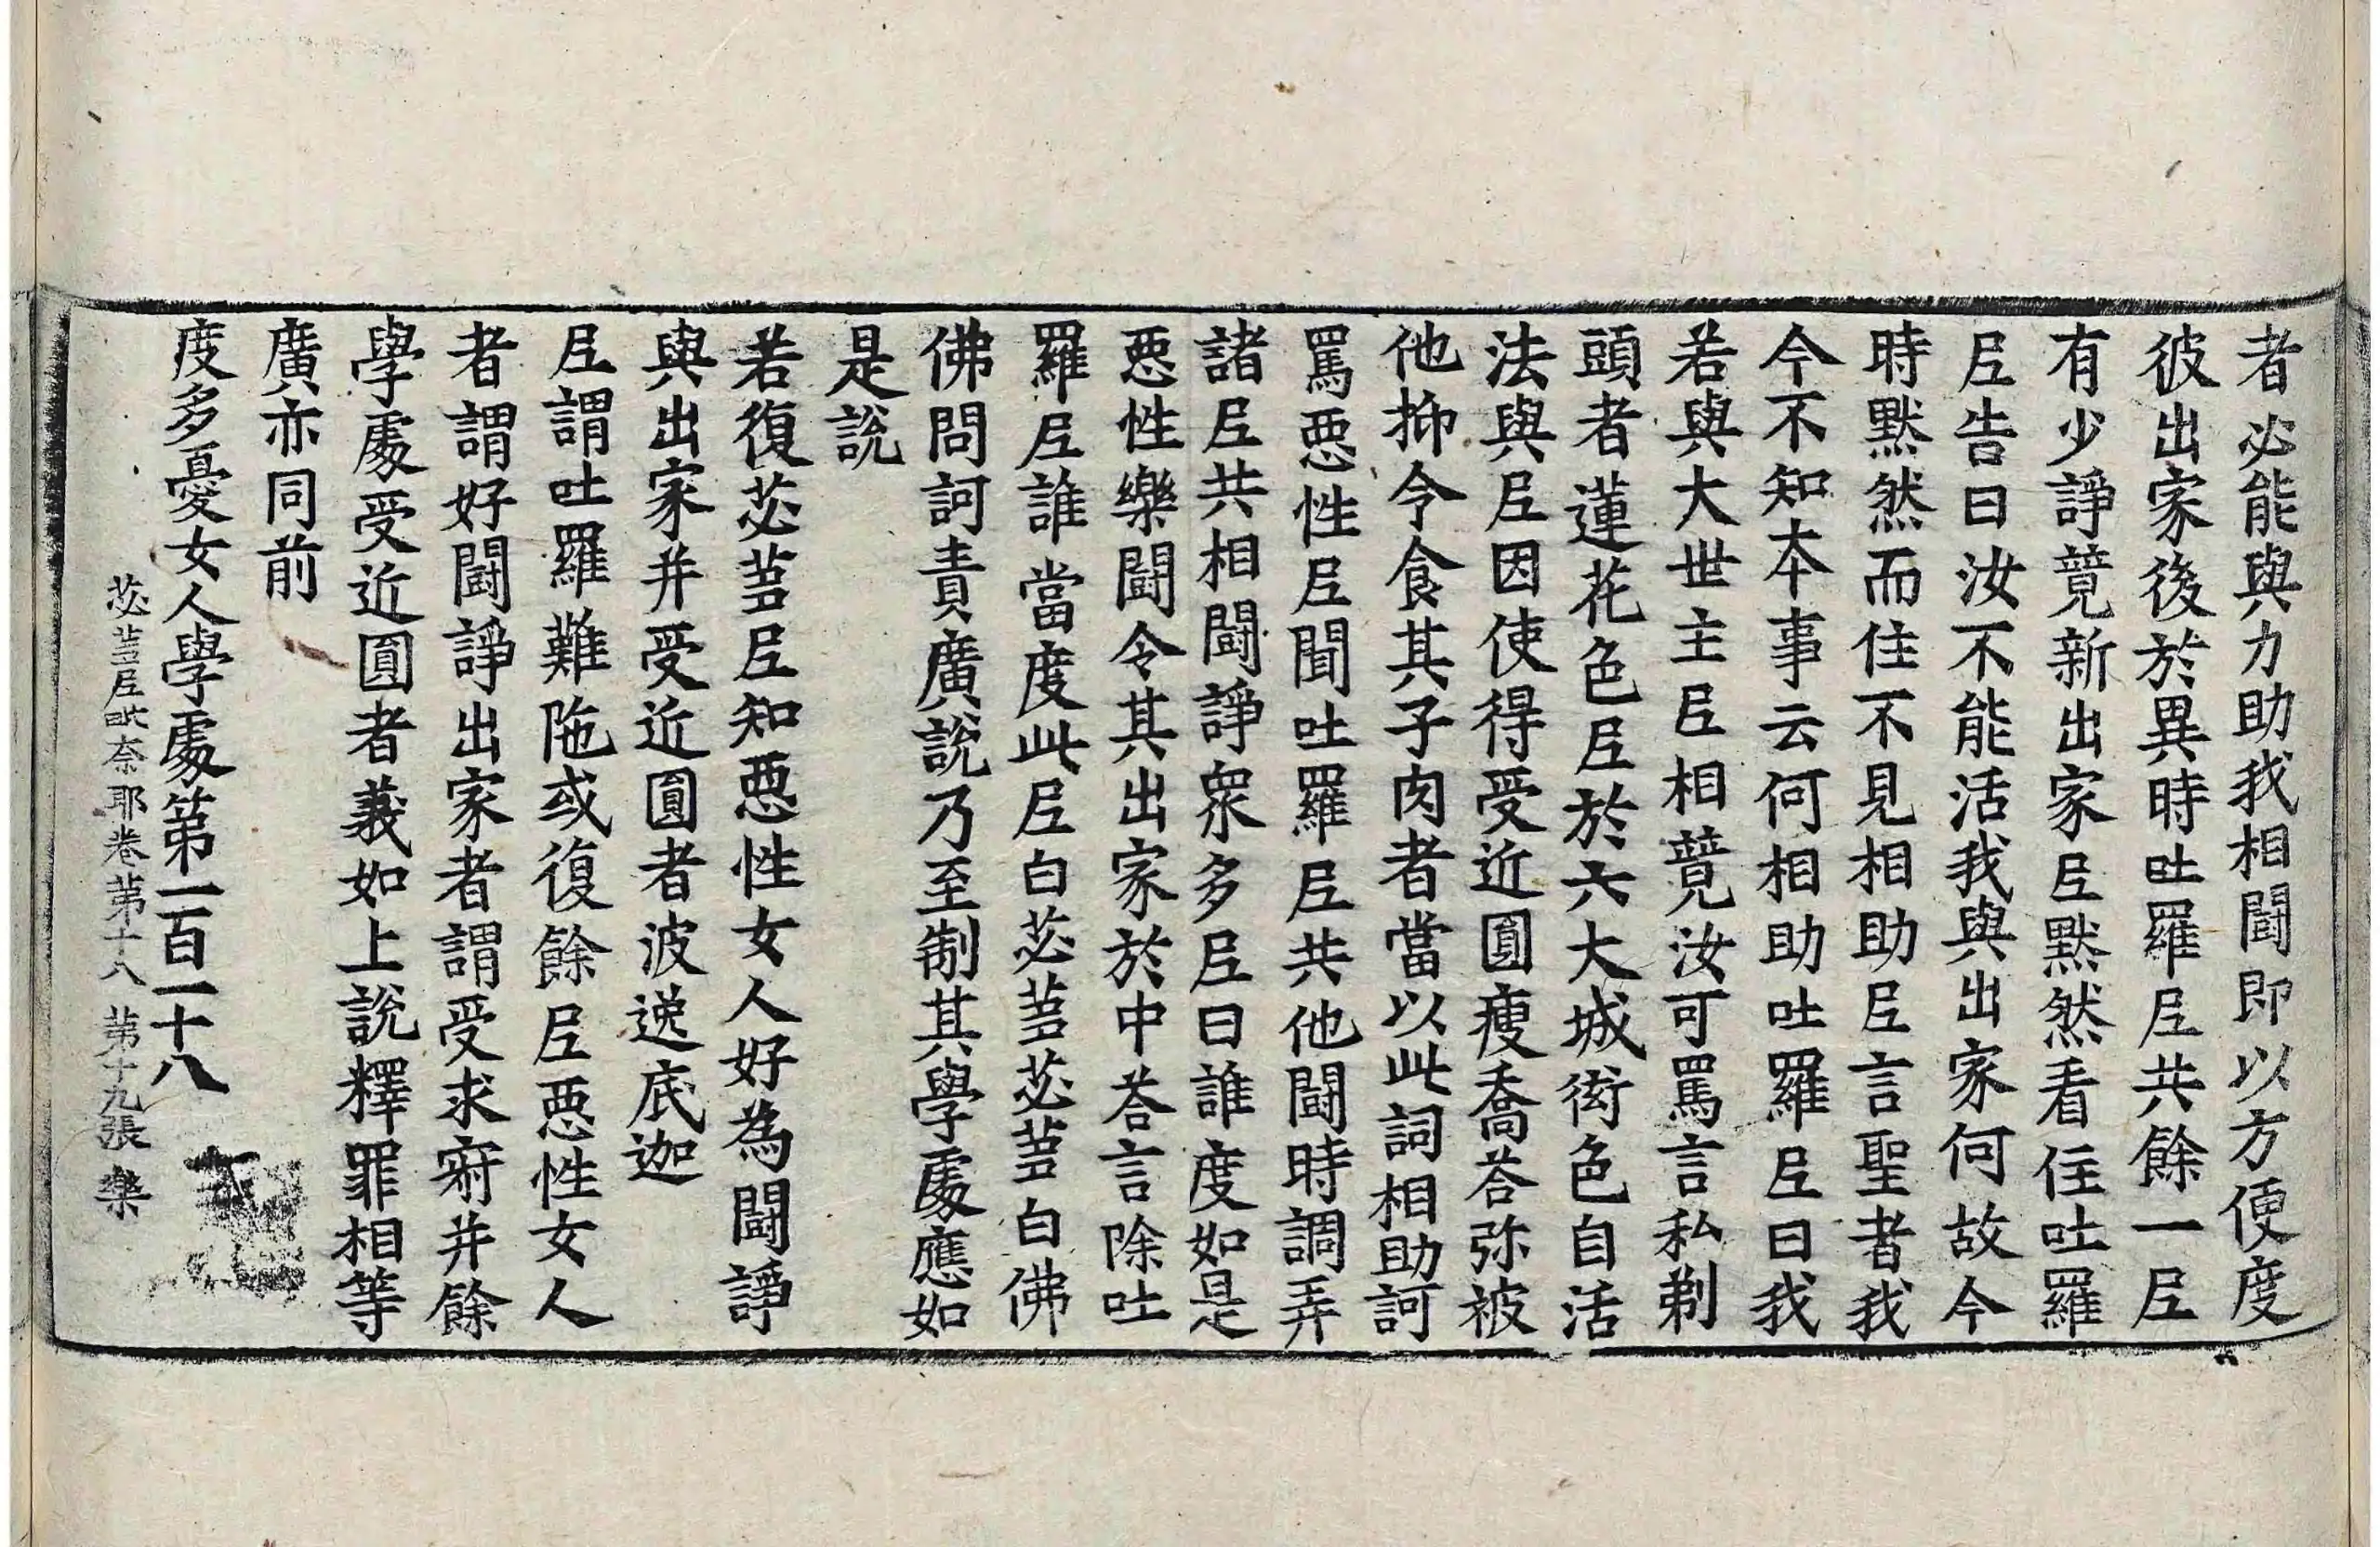 者必能與力助我相鬪即以方便度
彼出家後於異時吐羅𡰱共餘一𡰱
有少諍競新出家𡰱默然看住吐羅
𡰱告曰汝不能活我與出家何故今
時默然而住不見相助𡰱言聖者我
今不知本事云何相助吐羅𡰱曰我
若與大世主𡰱相競汝可罵言私剃
頭者蓮花色𡰱於六大城衒色自活
法與𡰱因使得受近圓瘦喬荅弥被
他抑令食其子肉者當以此詞相助訶
罵惡性𡰱聞吐羅𡰱共他鬪時調弄
諸𡰱共相鬪諍衆多𡰱曰誰度如是
惡性樂鬪令其出家於中荅言除吐
羅𡰱誰當度此𡰱白苾芻苾芻白佛
佛問訶責廣說乃至制其學處應如
是說
若復苾芻𡰱知惡性女人好為鬪諍
與出家并受近圓者波逸底迦
𡰱謂吐羅難陁或復餘𡰱惡性女人
者謂好鬪諍出家者謂受求寂并餘
學處受近圓者義如上說釋罪相等
廣亦同前
度多憂女人學處第一百一十八
苾芻𡰱毗奈耶卷第十八 第十九張 樂